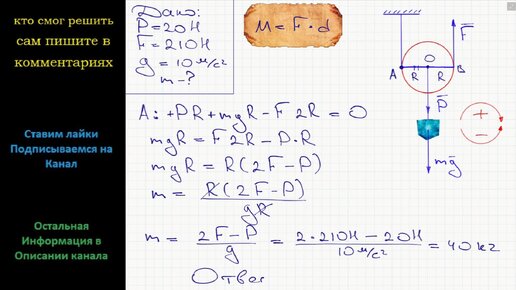 кто смог решить
сам пишите в
комментариях
Ставим лайки
Подписываемся на
Канал
Остальная
Информация в
Описании канала
Дано:
P=20Н
F=210Н
g=10м/с²
m-?
M=F·d
A: +PR+mgR-F2R=0
mgR=F2R-P·R
mgR=R(2F-P)
m=R(2F-P)/gR
m=2F-P/g=2·210Н-20Н/10м/с²=40кг
Ответ
F̅
O
A R R B
P̅
+
-
mg̅